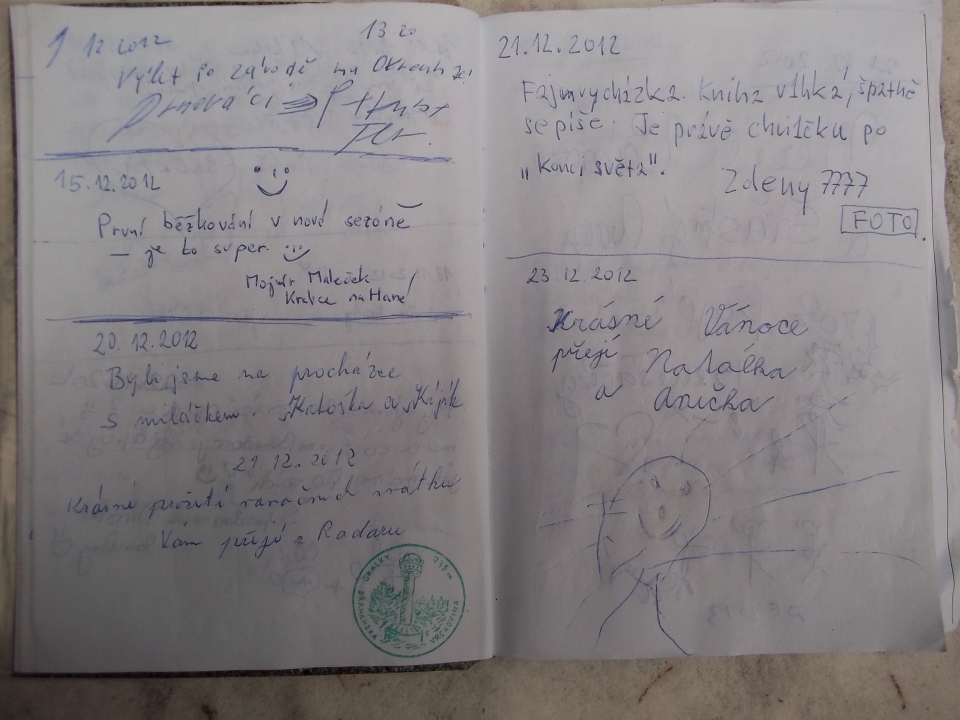 12 2012 13 20
Výlet po závodě na
15.12.2012
První běžkování v nové sezóně
– je to super.
Maleček
na Hané
20.12.2012
Byli jsme na procházce
s miláčkem. Katoška a Kájík
21.12.2012
Krásné prožití vánočních svátků
Vám přejí z Radaru
SKALKY 735 m
DRAHANSKÁ VRCHOVINA
21.12.2012
Fajnvycházka. Kniha vlhká, špatně
se píše. Je právě chvilčku po
"Konci světa".
Zdeny 7777
FOTO
23.12.2012
Krásné Vánoce
přejí Natálka
a Anička